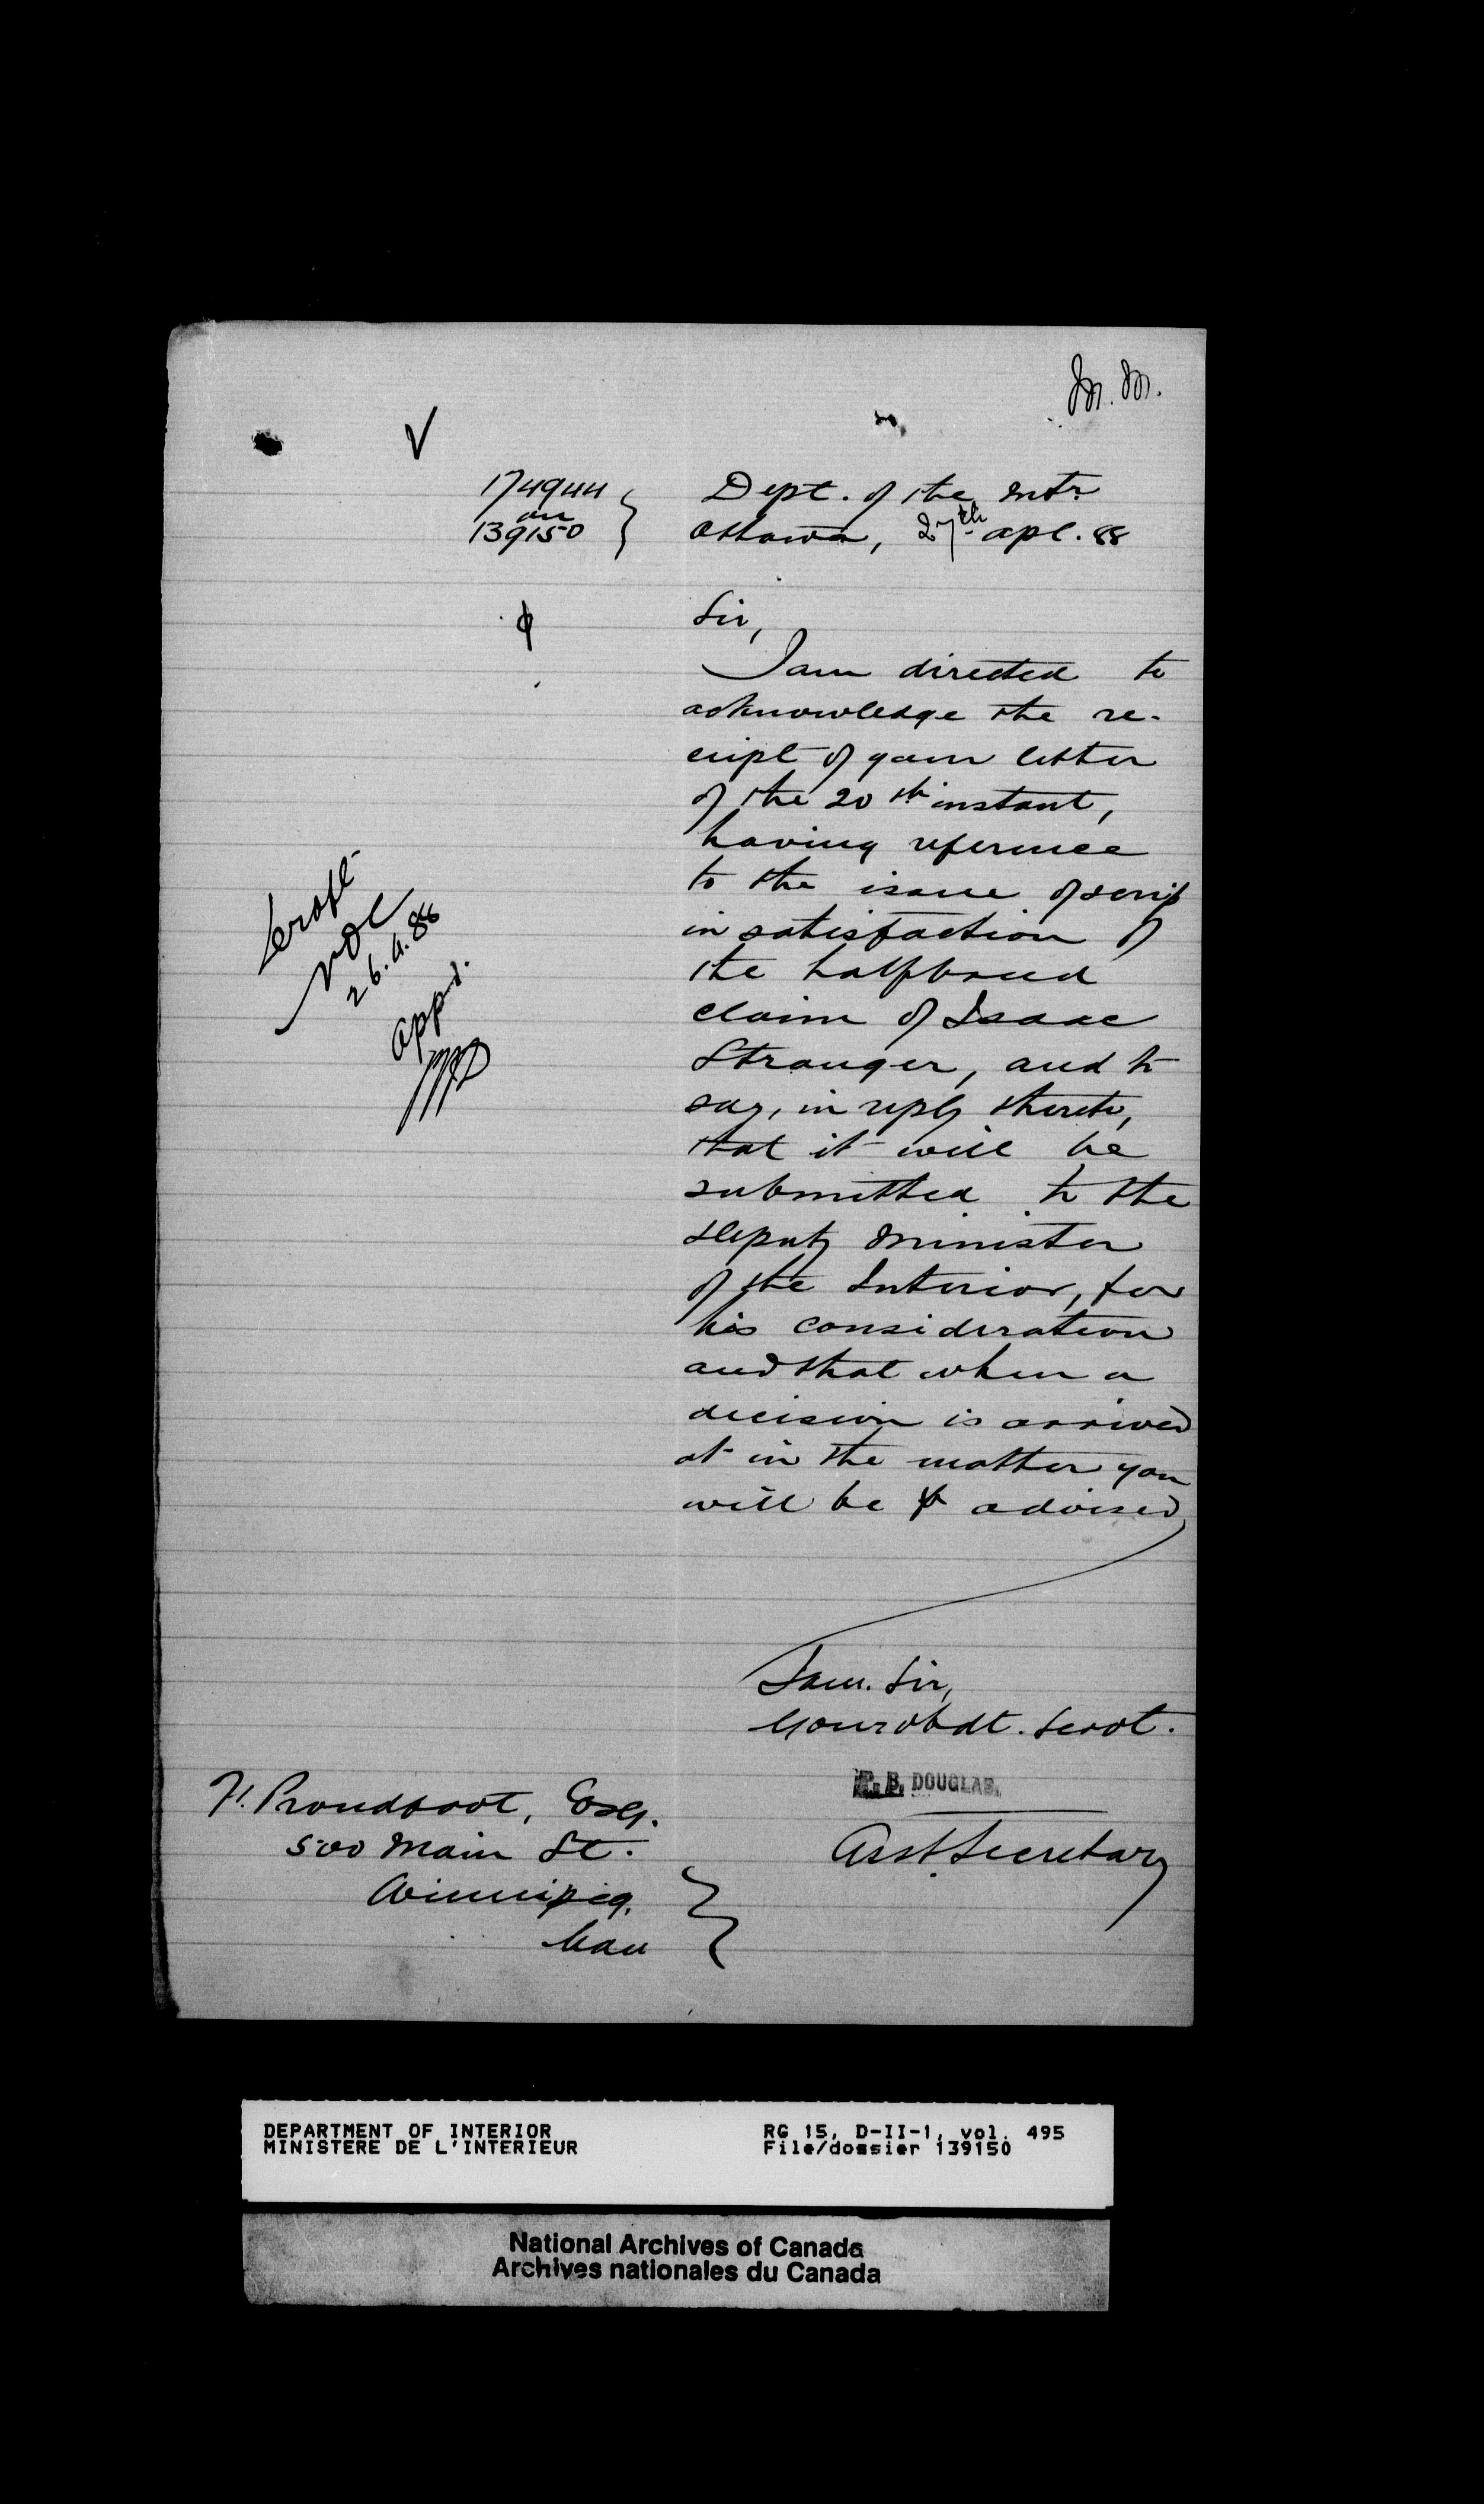 M.M.
174944
on
139150
Dept. of the Intr
Ottawa, 27th apl. 88
Sir,
I am directed to
acknowledge the re-
ceipt of your letter
of the 20th instant,
having reference
to the issue of scrip
in satisfaction of
the halfbreed
claim of Isaac
Stranger, and to
say, in reply thereto,
that it will be
submitted to the
Deputy Minister
of the Interior, for
his consideration
and that when a
decision is arrived
at in the matter you
will be advised
26.4.88
appd.
I am. Sir,
Your obdt. Servt.
P. B. DOUGLAS.
Asst Secretary
H. Proudfoot, Esq.
500 Main St.
Winnipeg,
Man
DEPARTMENT OF INTERIOR
MINISTERE DE L'INTERIEUR
RG 15, D-II-1, vol. 495
File/dossier 139150
National Archives of Canada
Archives nationales du Canada